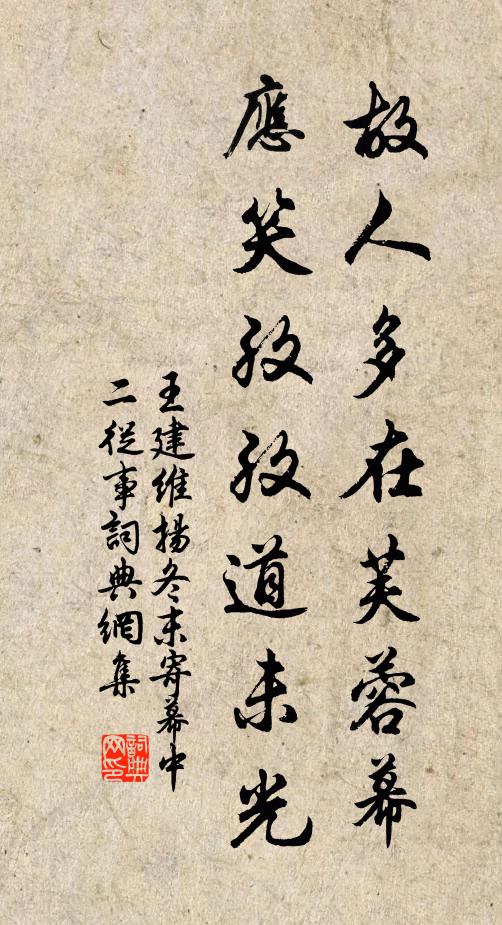 故人多在芙蓉幕
應笑孜孜道未光
王建維揚冬末寄幕中
二從事詞典網集
詞典
网印